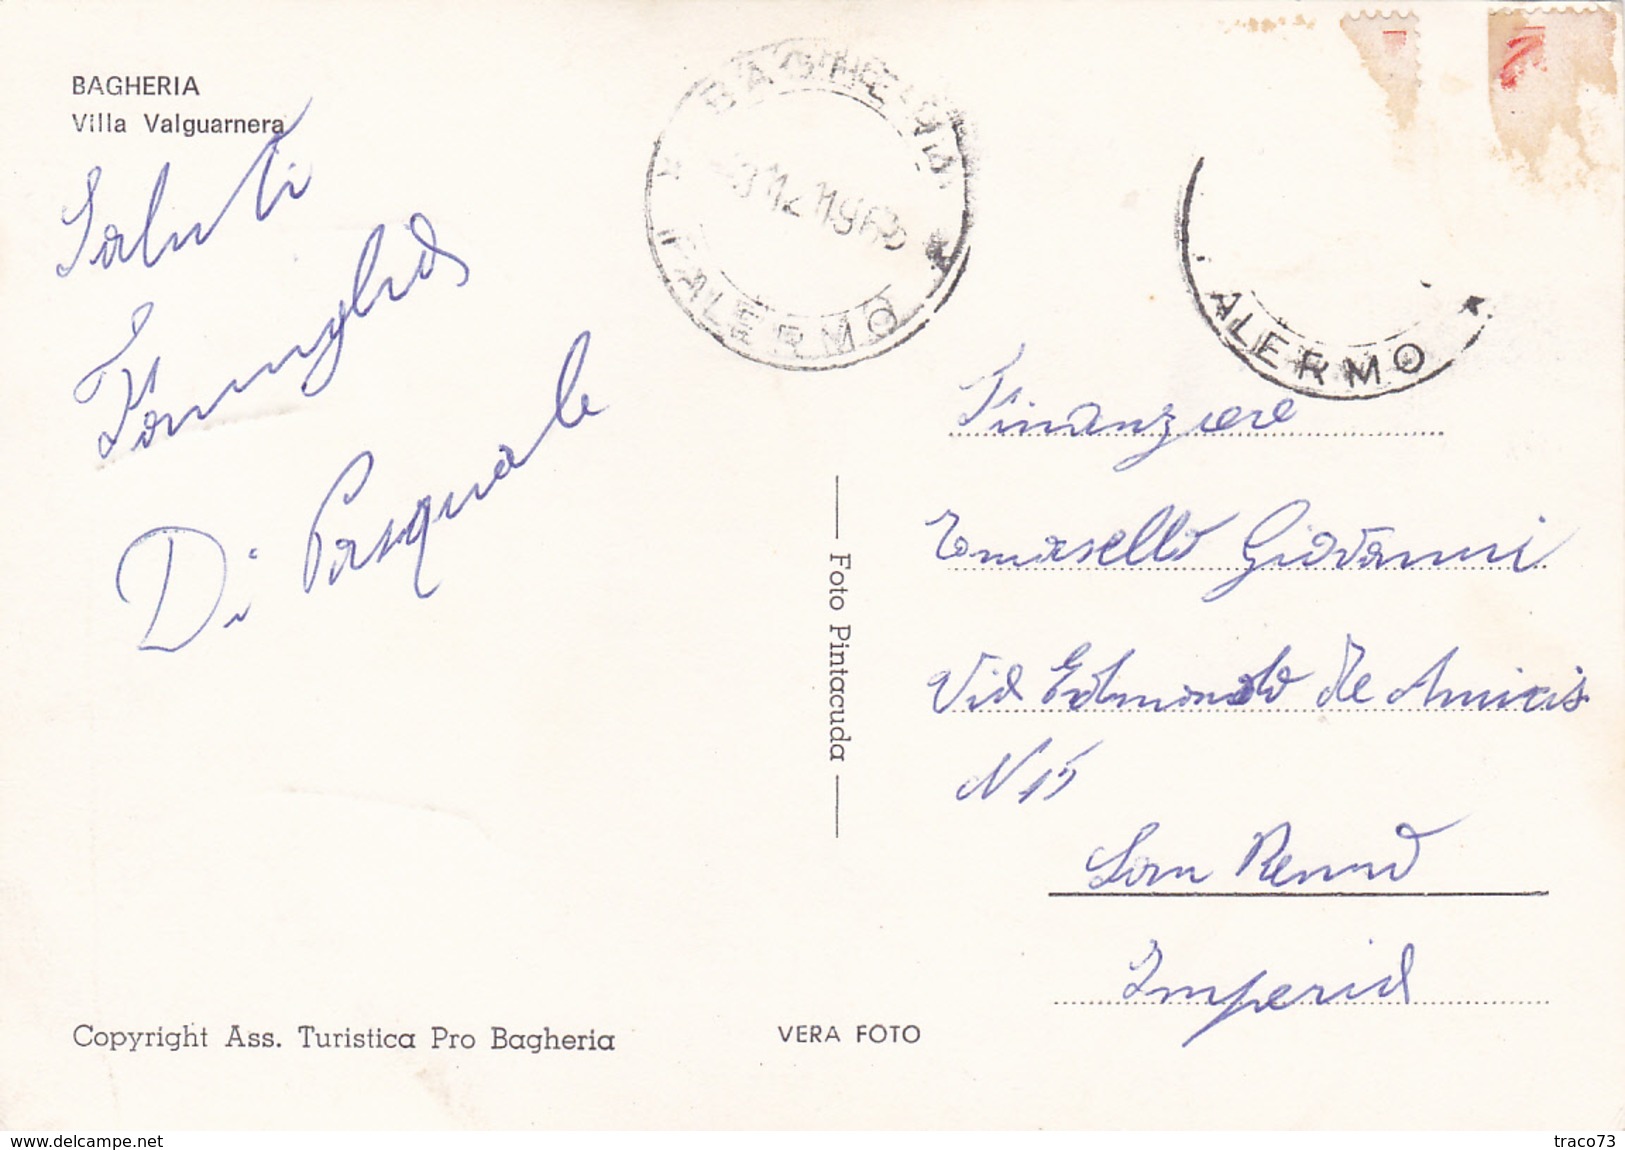 BAGHERIA
Villa Valguarnera
Saluti
Famiglia
Di Pasquale
BAGHERIA
PALERMO
ALERMO
Finanziere
Tomasello Giovanni
Via Edmondo De Amicis
N 15
San Remo
Imperia
Foto Pintacuda
Copyright Ass. Turistica Pro Bagheria
VERA FOTO
www.delcampe.net
traco73